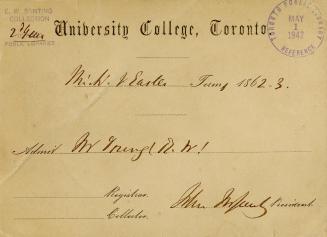 E. W. BANTING
COLLECTION
PUBLIC LIBRARIES
2d Year
University College, Toronto
TORONTO PUBLIC LIBRARY
MAY
1
1942
REFERENCE
Mich. & Easter Term 1862-3.
Admit Mr Young
Registrar.
Collector.
John McCaul President.